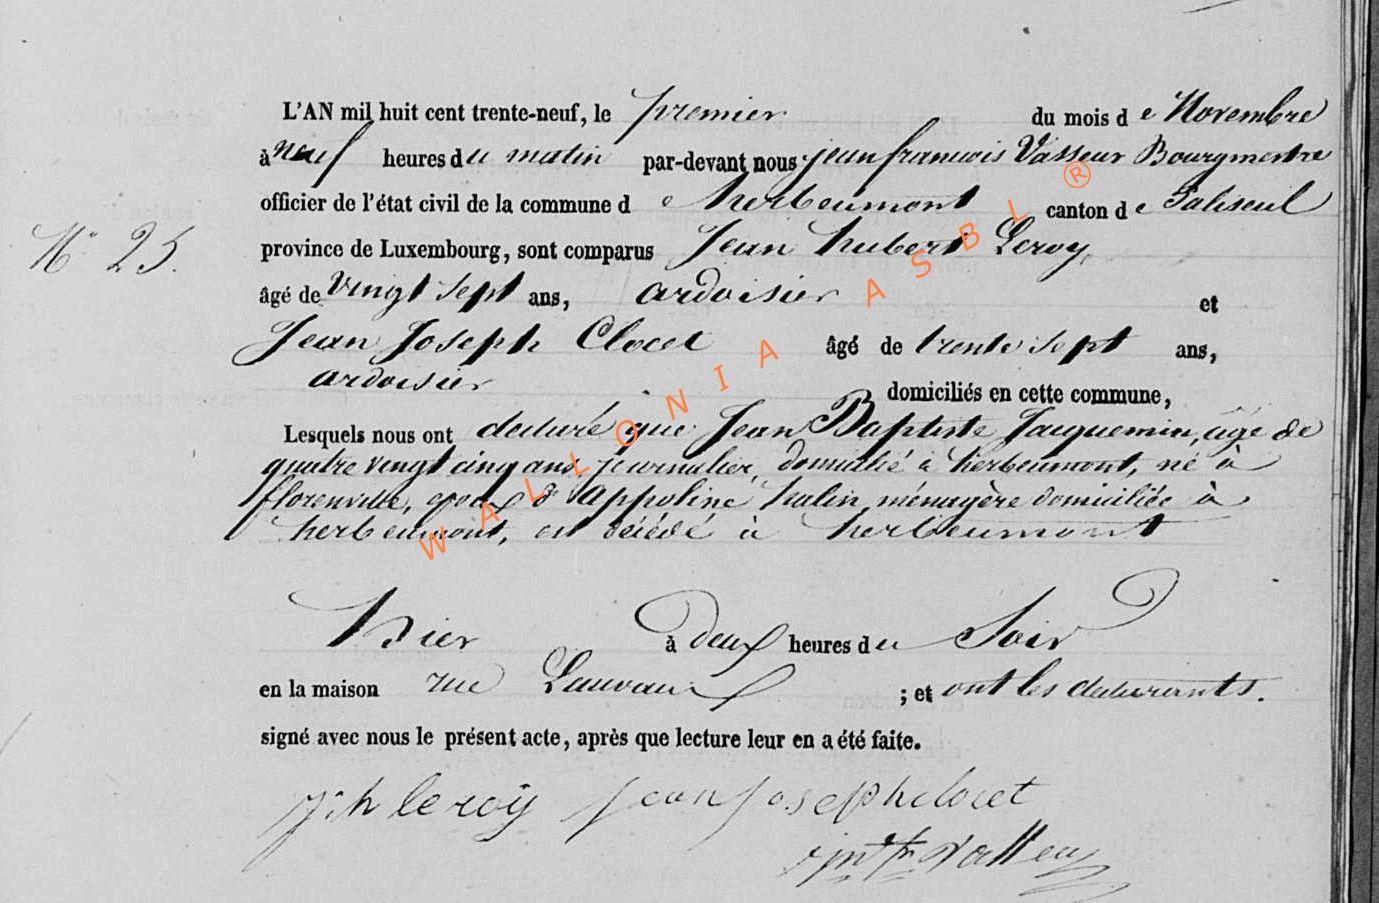 L'AN mil huit cent trente-neuf, le premier du mois de Novembre
à neuf heures du matin par-devant nous jean francois Vasseur Bourgmestre
officier de l'état civil de la commune de herbeumont canton de Paliseul
N° 25. province de Luxembourg, sont comparus Jean hubert Leroy,
âgé de vingt sept ans, ardoisier et
Jean Joseph Clocet âgé de trente sept ans,
ardoisier domiciliés en cette commune,
Lesquels nous ont declaré que Jean Baptiste Jacquemin, âgé de
quatre vingt cinq ans, journalier, domicilié à herbeumont, né à
florenville, epoux d'appoline halin, ménagère domiciliée à
herbeumont, est décédé à herbeumont
hier à deux heures du Soir
en la maison rue Lauvaux ; et ont les declarants.
signé avec nous le présent acte, après que lecture leur en a été faite.
j: h leroÿ jean joseph clocet
WALLONIA ASBL ®